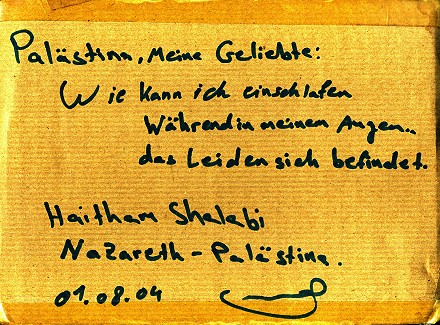 Palästina, Meine Geliebte:
Wie kann ich einschlafen
Während in meinen Augen..
das Leiden sich befindet.
Haitham Shalabi
Nazareth - Palästina.
01.08.04